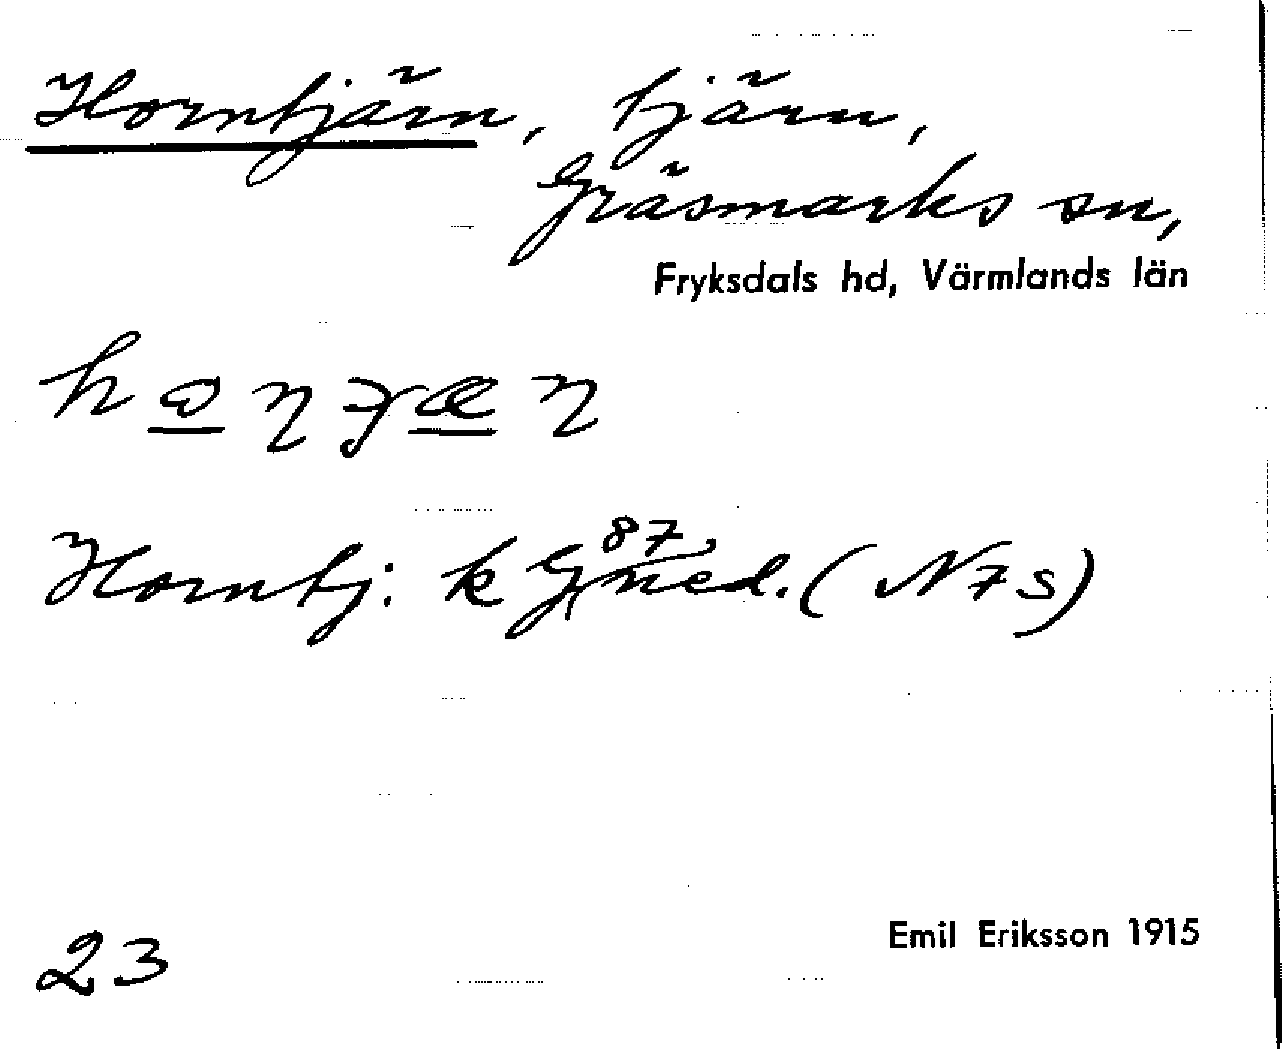 Horntjärn, tjärn,
Gräsmarks sn,
Fryksdals hd, Värmlands län
Horntj. k G 87 ned. (N 7 s)
23
Emil Eriksson 1915